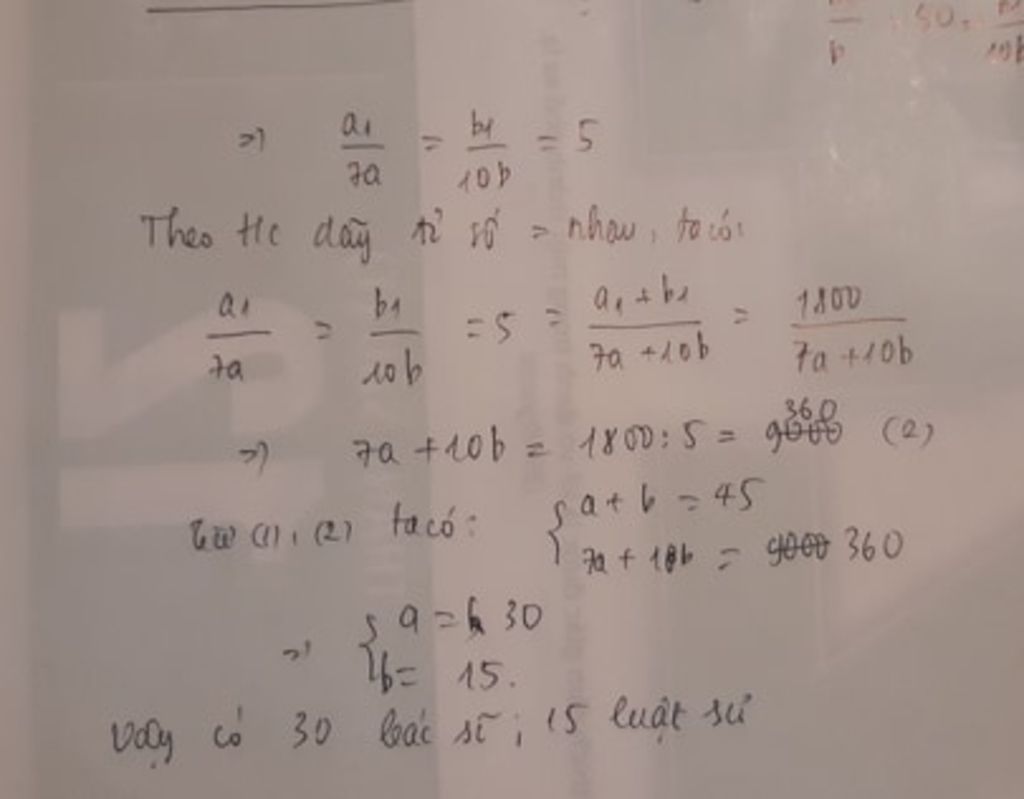 => a₁/7a = b₁/10b = 5
Theo t/c dãy tỉ số = nhau, ta có:
a₁/7a = b₁/10b = 5 = (a₁ + b₁)/(7a + 10b) = 1800/(7a + 10b)
=> 7a + 10b = 1800 : 5 = 360 (2)
Từ (1), (2) ta có: { a + b = 45
7a + 10b = 360
=> { a = 30
b = 15.
Vậy có 30 bác sĩ; 15 luật sư